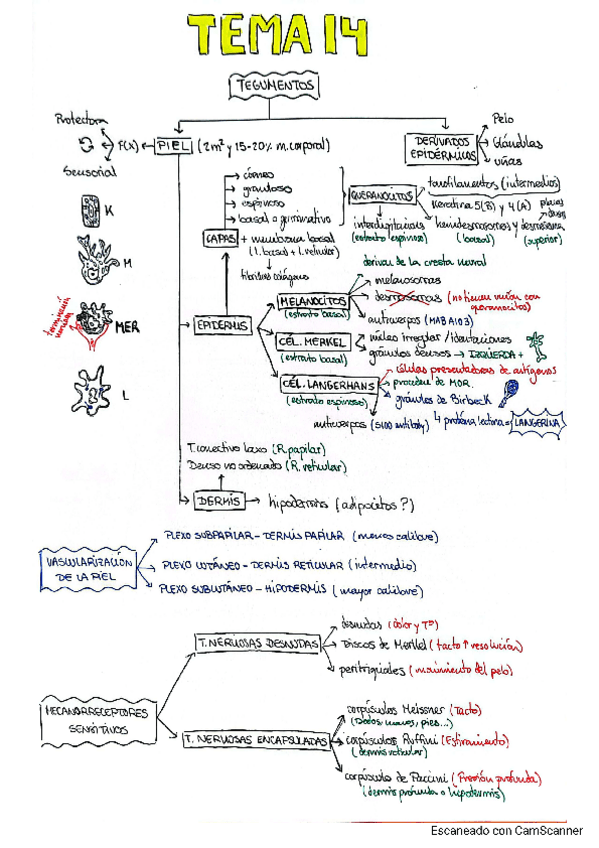 TEMA 14
TEGUMENTOS
Protectora
F(x)
Sensorial
PIEL (2m² y 15-20% m. corporal)
DERIVADOS EPIDÉRMICOS
Pelo
Glándulas
uñas
córneo
granuloso
espinoso
basal o germinativo
CAPAS + membrana basal
(l. basal + l. reticular)
fibrillas colágeno
QUERANOCITOS
tonofilamentos (intermedios)
Keratina 5(B) y 4(A)
interdigitaciones
(estrato espinoso)
hemidesmosomas y desmosomas
(basal)
(superior)
K
M
MER
terminación nerviosa
L
EPIDERMIS
derivan de la cresta neural
MELANOCITOS
(estrato basal)
melanosomas
desmosomas (no tienen unión con queranocitos)
anticuerpos (MABA103)
CÉL. MERKEL
(estrato basal)
núcleo irregular / identaciones
gránulos densos → IZQUIERDA +
CÉL. LANGERHANS
(estrato espinoso)
células presentadoras de antígenos
proceden de MOR.
gránulos de Birbeck
↳ proteína lectora = LANGERINA
anticuerpos (S100 antibody)
T. conectivo laxo (R. papilar)
Denso no ordenado (R. reticular)
DERMIS
hipodermis (adipocitos?)
VASCULARIZACIÓN DE LA PIEL
PLEXO SUBPAPILAR - DERMIS PAPILAR (menos calibre)
PLEXO CUTÁNEO - DERMIS RETICULAR (intermedio)
PLEXO SUBCUTÁNEO - HIPODERMIS (mayor calibre)
MECANORRECEPTORES SENSITIVOS
T. NERVIOSAS DESNUDAS
desnudas (dolor y Tª)
Discos de Merkel (tacto ↑ resolución)
peritriquiales (movimiento del pelo)
T. NERVIOSAS ENCAPSULADAS
corpúsculos Meissner (Tacto)
(Dedos, manos, pies...)
corpúsculos Ruffini (Estiramiento)
(dermis reticular)
corpúsculo de Paccini (Presión profunda)
(dermis profunda o hipodermis)
Escaneado con CamScanner